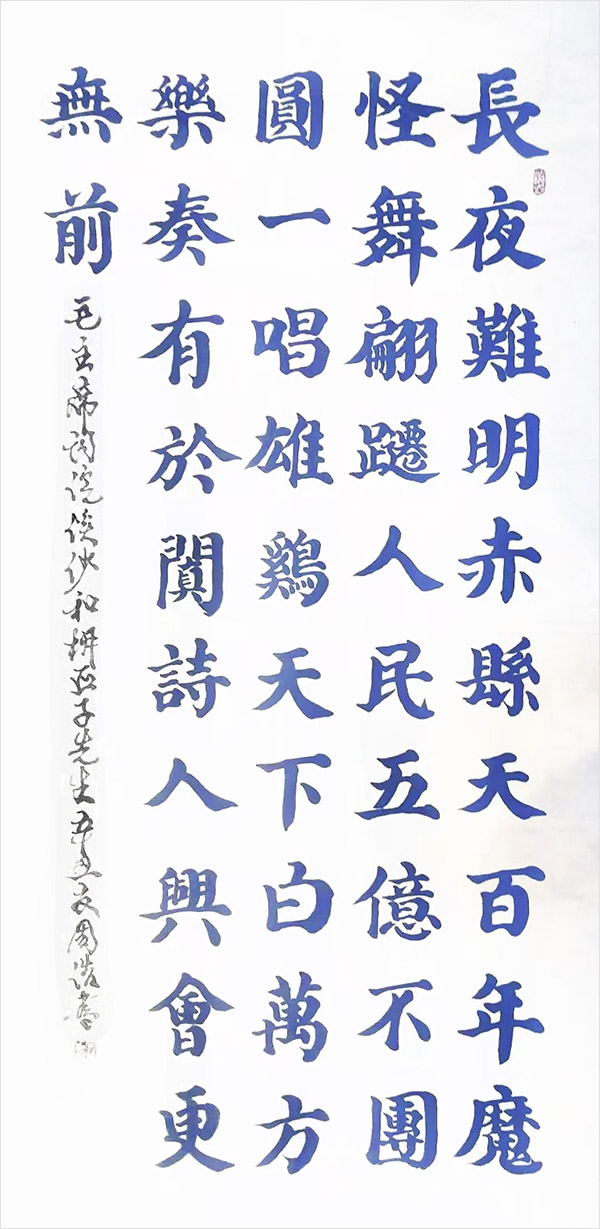 長夜難明赤縣天百年魔
怪舞翩躚人民五億不團
圓一唱雄鷄天下白萬方
樂奏有於闐詩人興會更
無前
毛主席詞浣溪沙和柳亞子先生